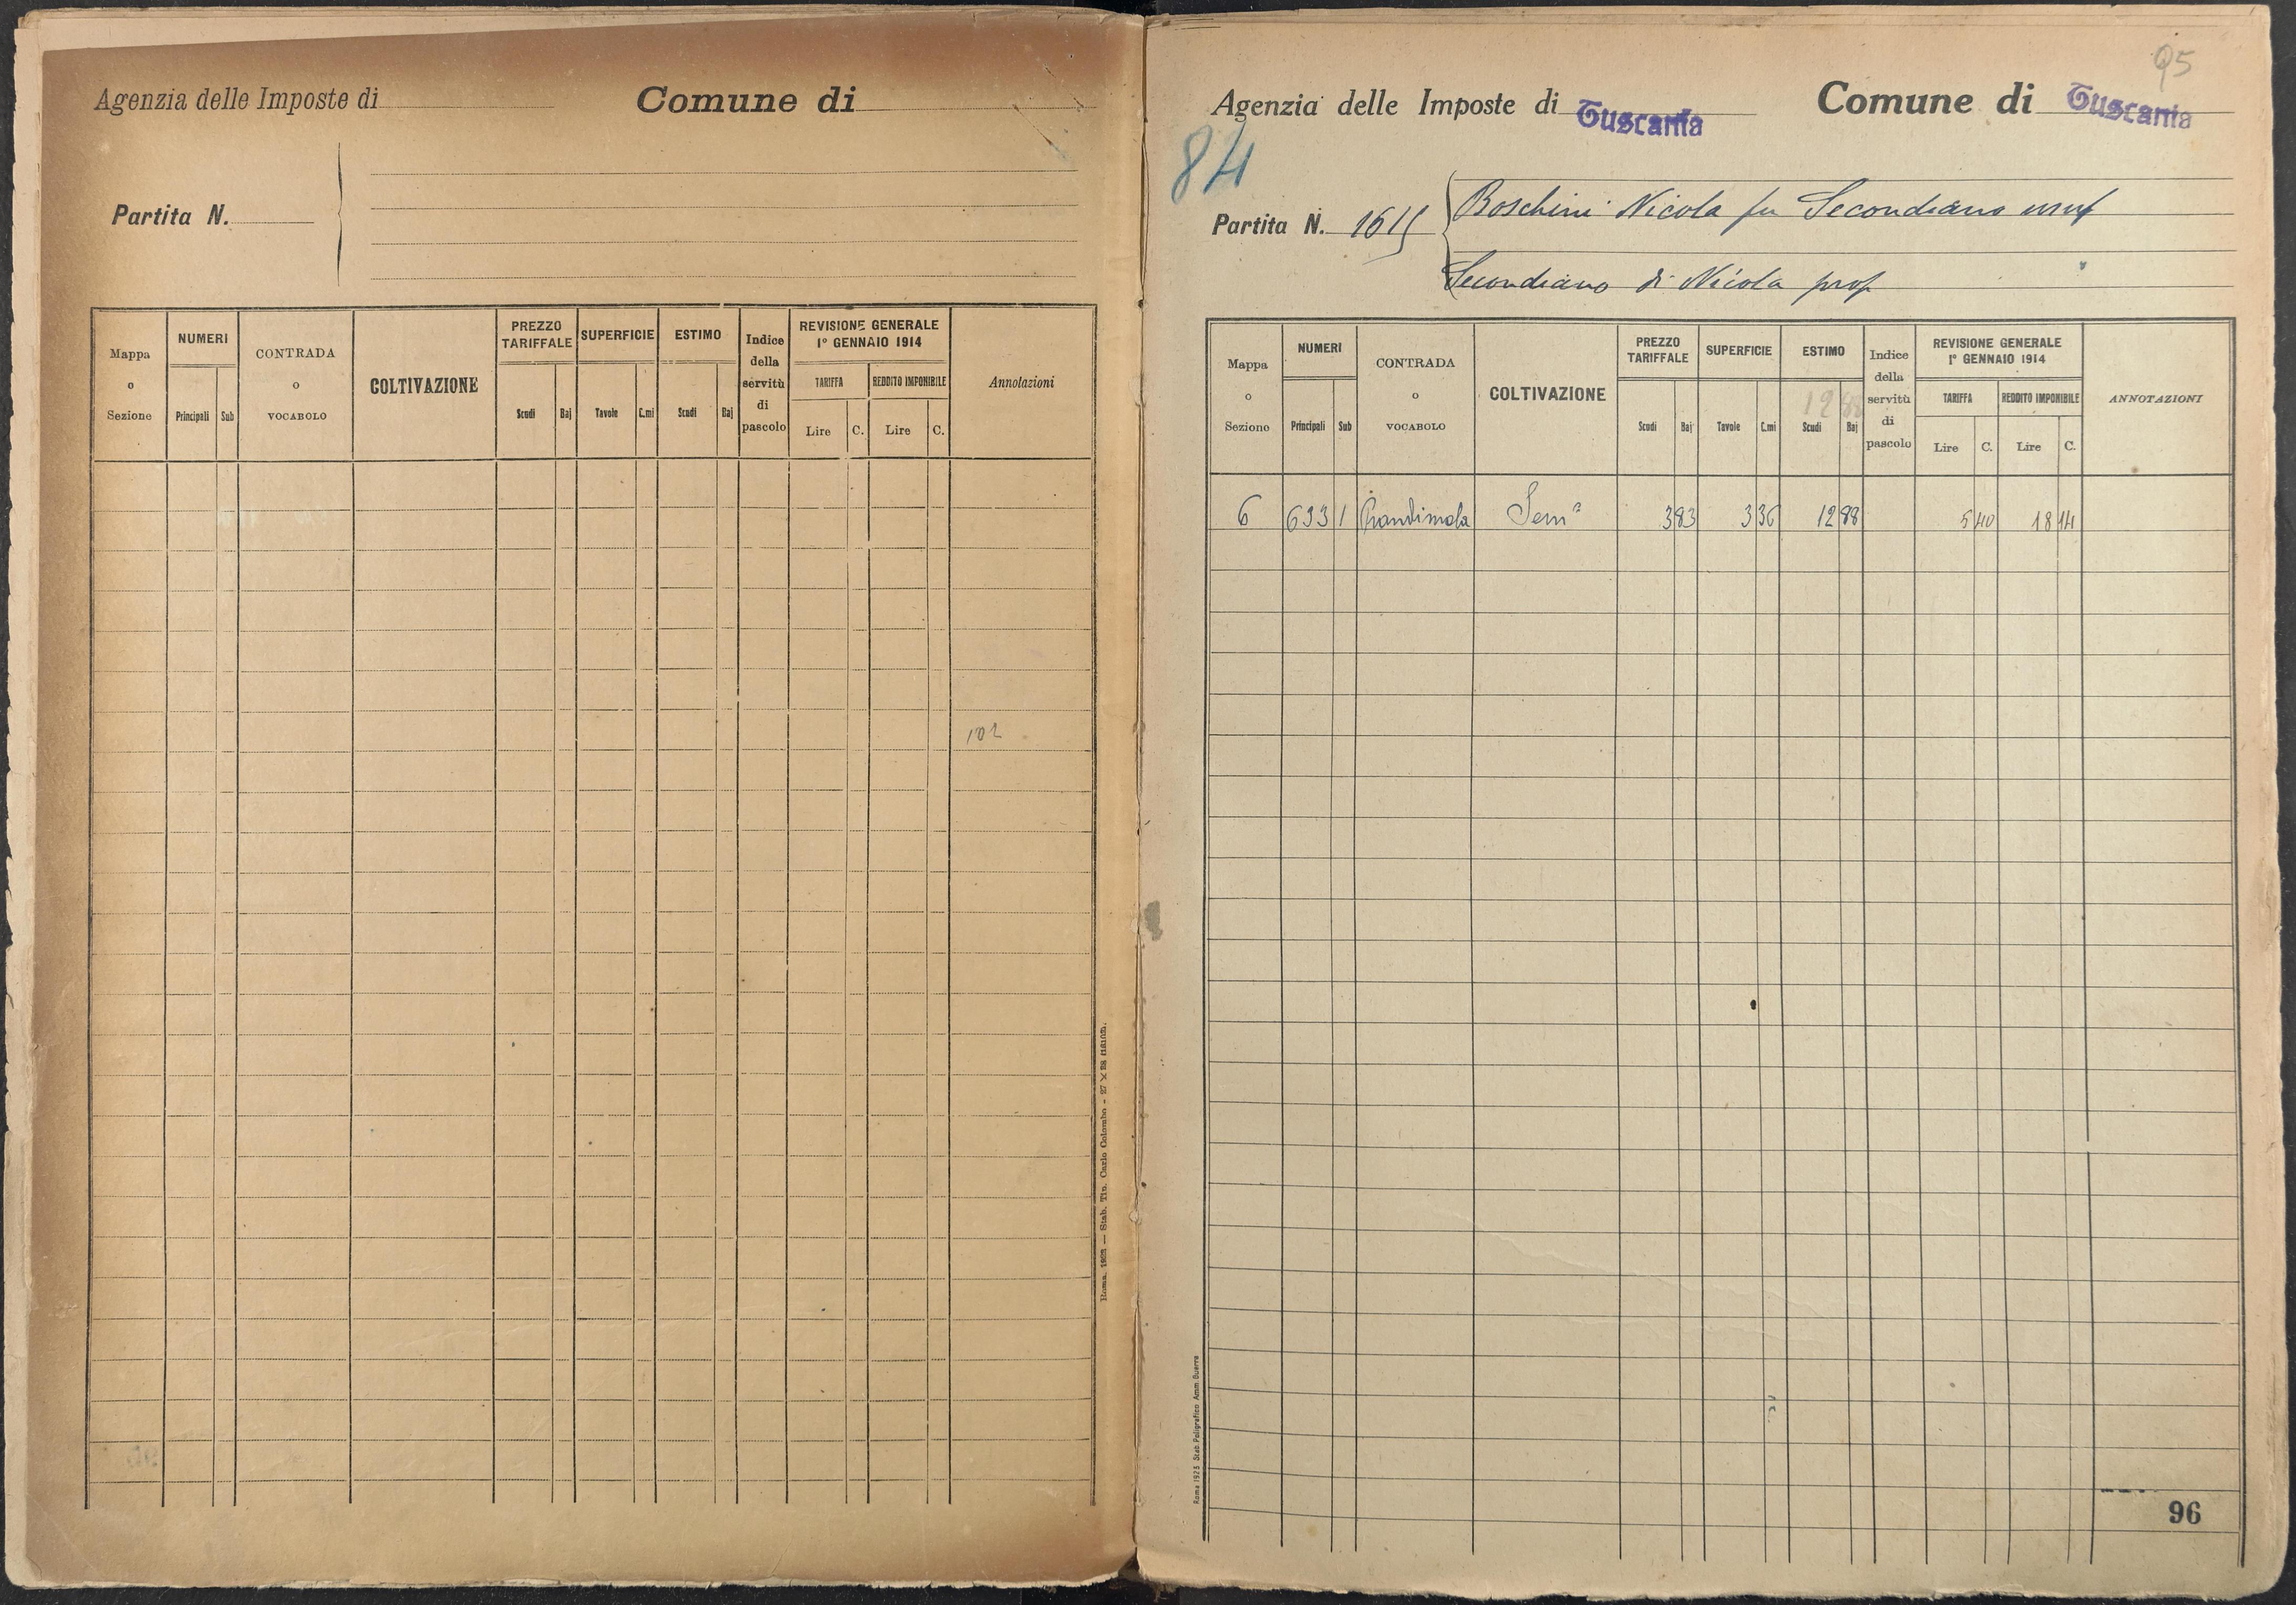 Agenzia delle Imposte di
Comune di
Partita N.
Mappa o Sezione
NUMERI
Principali
Sub
CONTRADA o VOCABOLO
COLTIVAZIONE
PREZZO TARIFFALE
Scudi
Baj
SUPERFICIE
Tavole
C.mi
ESTIMO
Scudi
Baj
Indice della servitù di pascolo
REVISIONE GENERALE 1° GENNAIO 1914
TARIFFA
Lire
C.
REDDITO IMPONIBILE
Lire
C.
Annotazioni
102
Roma, 1923 — Stab. Tip. Carlo Colombo - 27 X 28
95
Agenzia delle Imposte di Tuscania
Comune di Tuscania
84
Partita N. 1615
Boschini Nicola fu Secondiano usuf
Secondiano di Nicola prop
Mappa o Sezione
NUMERI
Principali
Sub
CONTRADA o VOCABOLO
COLTIVAZIONE
PREZZO TARIFFALE
Scudi
Baj
SUPERFICIE
Tavole
C.mi
ESTIMO
12 88
Scudi
Baj
Indice della servitù di pascolo
REVISIONE GENERALE 1° GENNAIO 1914
TARIFFA
Lire
C.
REDDITO IMPONIBILE
Lire
C.
ANNOTAZIONI
6 633 1 Sem° 3 83 3 36 12 88 5 40 18 14
Roma 1925 Stab. Poligrafico Amm. Guerra
96